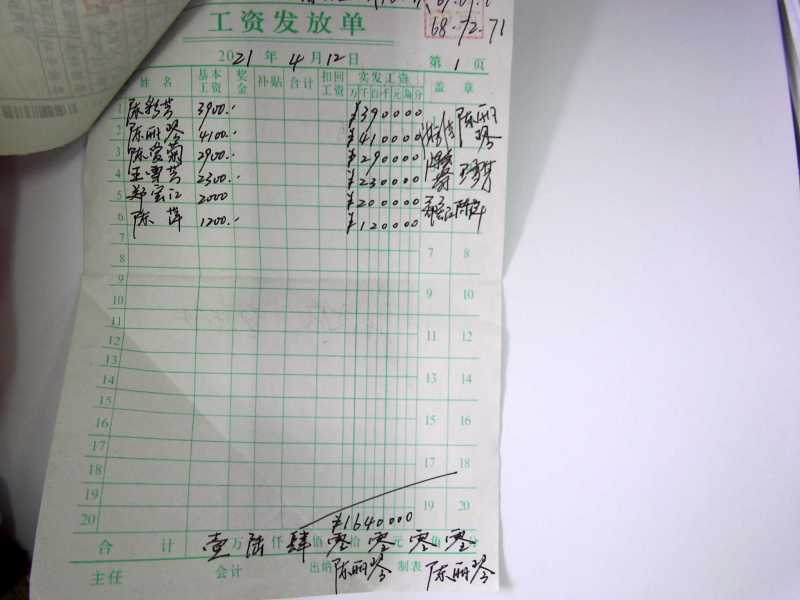 工资发放单
68-72-71
2021年4月12日 第1页
姓名 基本工资 奖金 补贴 合计 扣回工资 实发工资 万千百十元角分 盖章
1 陈彩芳 3900.- ¥390000 陈丽琴
2 陈丽琴 4100.- ¥410000
3 陈爱菊 2900.- ¥290000
4 王雪芳 2300.- ¥230000
5 郑宝江 2000 ¥200000
6 陈萍 1200.- ¥120000 陈萍
7 7 8
8
9 9 10
10
11 11 12
12
13 13 14
14
15 15 16
16
17 17 18
18
19 19 20
20 ¥1640000
合计 壹万陆仟肆佰零拾零元零角零分
主任 会计 出纳 陈丽琴 制表 陈丽琴